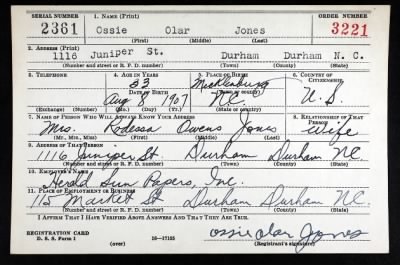 SERIAL NUMBER 1. NAME (Print) ORDER NUMBER
2361 Ossie Olar Jones 3221
(First) (Middle) (Last)
2. ADDRESS (Print)
1116 Juniper St. Durham Durham N. C.
(Number and street or R. F. D. number) (Town) (County) (State)
3. TELEPHONE 4. AGE IN YEARS 5. PLACE OF BIRTH 6. COUNTRY OF CITIZENSHIP
33 Mecklenburg
DATE OF BIRTH (Town or county)
Aug 9 1907 NC. U. S.
(Exchange) (Number) (Mo.) (Day) (Yr.) (State or country)
7. NAME OF PERSON WHO WILL ALWAYS KNOW YOUR ADDRESS 8. RELATIONSHIP OF THAT PERSON
Mrs. Rodessa Owens Jones Wife
(Mr., Mrs., Miss) (First) (Middle) (Last)
9. ADDRESS OF THAT PERSON
1116 Juniper St Durham Durham NC
(Number and street or R. F. D. number) (Town) (County) (State)
10. EMPLOYER'S NAME
Herald Sun Papers, Inc.
11. PLACE OF EMPLOYMENT OR BUSINESS
115 Market St Durham Durham NC.
(Number and street or R. F. D. number) (Town) (County) (State)
I AFFIRM THAT I HAVE VERIFIED ABOVE ANSWERS AND THAT THEY ARE TRUE.
REGISTRATION CARD
D. S. S. Form 1 (over) 16—17105 Ossie Olar Jones
(Registrant's signature)